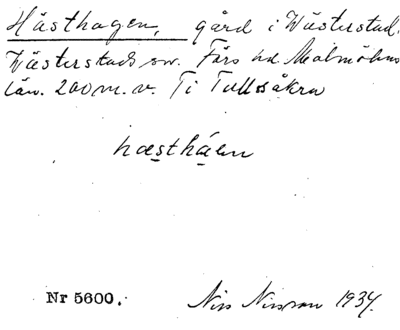 Hästhagen, gård i Västerstad.
Västerstads sn. Färs hd. Malmöhus
län. 200 m. v. Ti Tullesåkra
hæstháen
Nr 5600.
Nils Nilsson 1934.